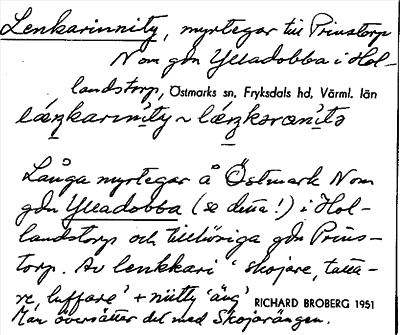 Lenkarinnity, myrtegar till Prinstorp
Nom gdn Ylladobba i Hol-
landstorp, Östmarks sn, Fryksdals hd, Värml. län
Långa myrtegar å Östmark Nom
gdn Ylladobba (se detta!) i Hol-
landstorp och tillhöriga gdn Prins-
torp. Av lenkkari 'skojare, tatta-
re, luffare' + niitty 'äng' RICHARD BROBERG 1951
Man översätter det med Skojarängen.